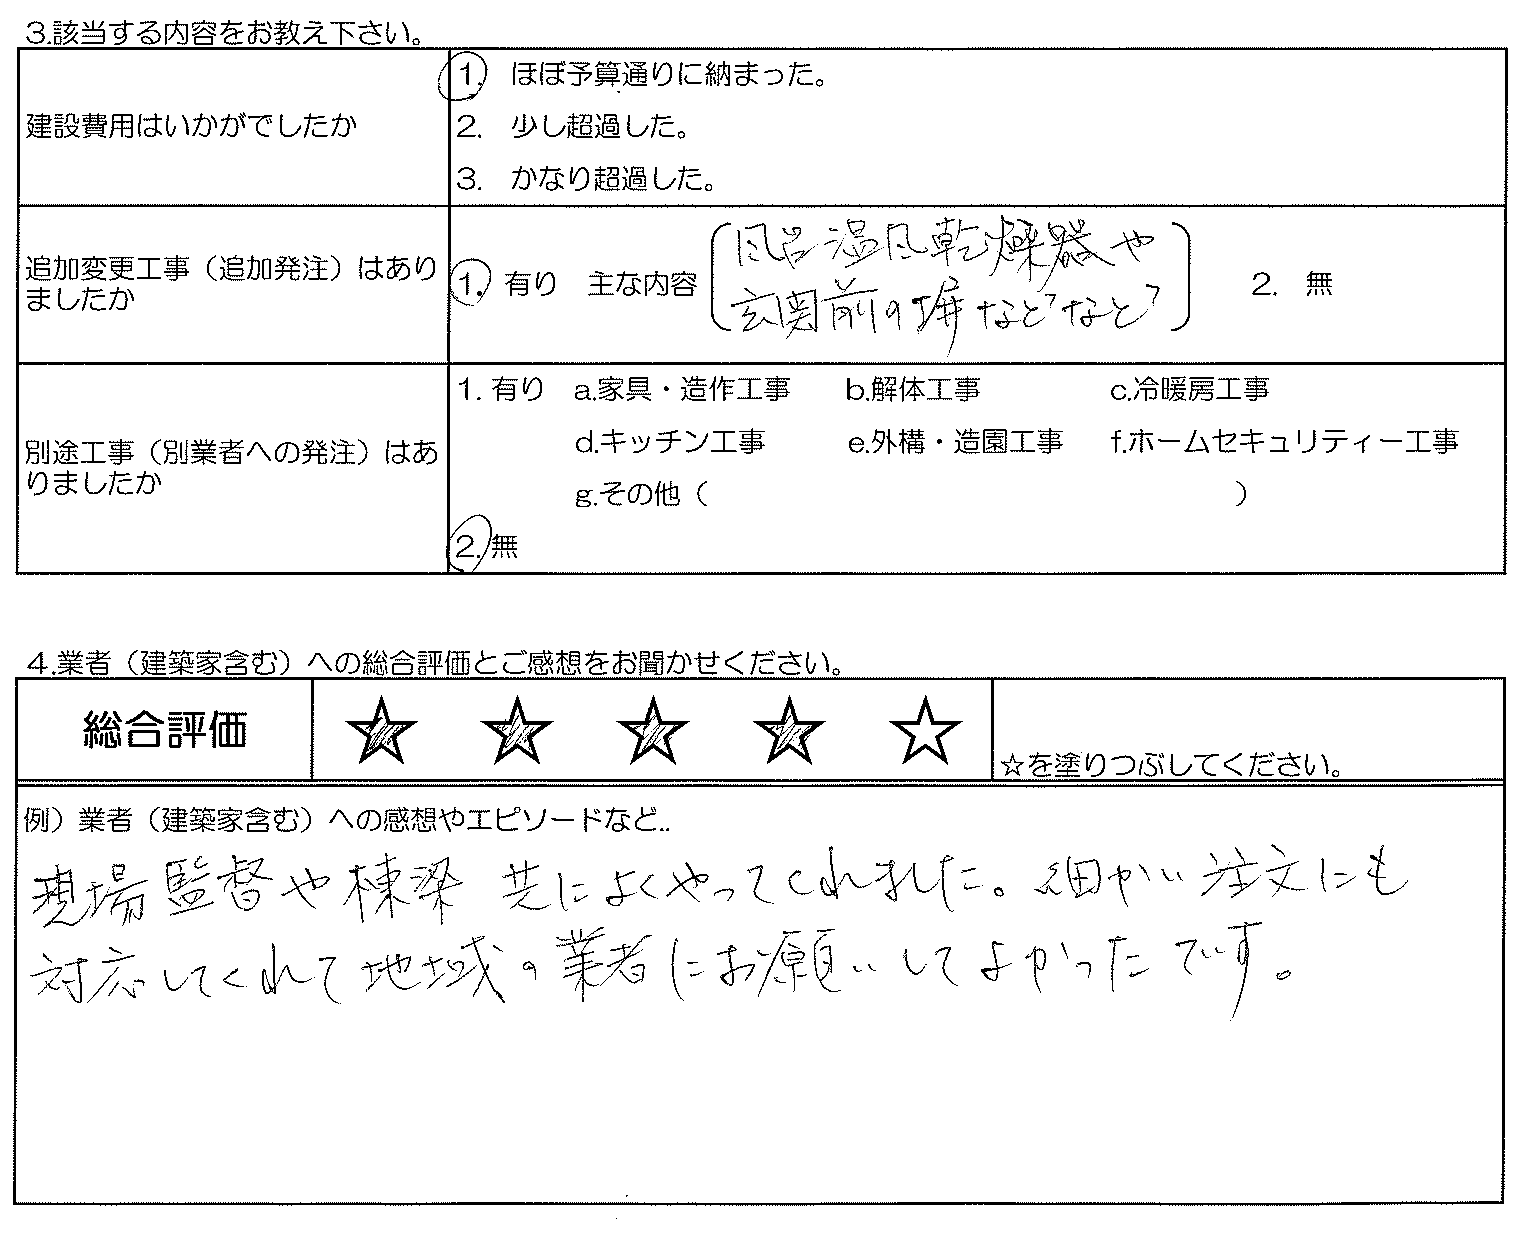 3.該当する内容をお教え下さい。
建設費用はいかがでしたか
1. ほぼ予算通りに納まった。
2. 少し超過した。
3. かなり超過した。
追加変更工事（追加発注）はあり
ましたか
1. 有り 主な内容 風呂温風乾燥器や 2. 無
玄関前の塀などなど
別途工事（別業者への発注）はあ
りましたか
1. 有り a.家具・造作工事 b.解体工事 c.冷暖房工事
d.キッチン工事 e.外構・造園工事 f.ホームセキュリティー工事
g.その他（ ）
2. 無
4.業者（建築家含む）への総合評価とご感想をお聞かせください。
総合評価 ★ ★ ★ ★ ☆ ☆を塗りつぶしてください。
例）業者（建築家含む）への感想やエピソードなど..
現場監督や棟梁 共によくやってくれました。細かい注文にも
対応してくれて地域の業者にお願いしてよかったです。